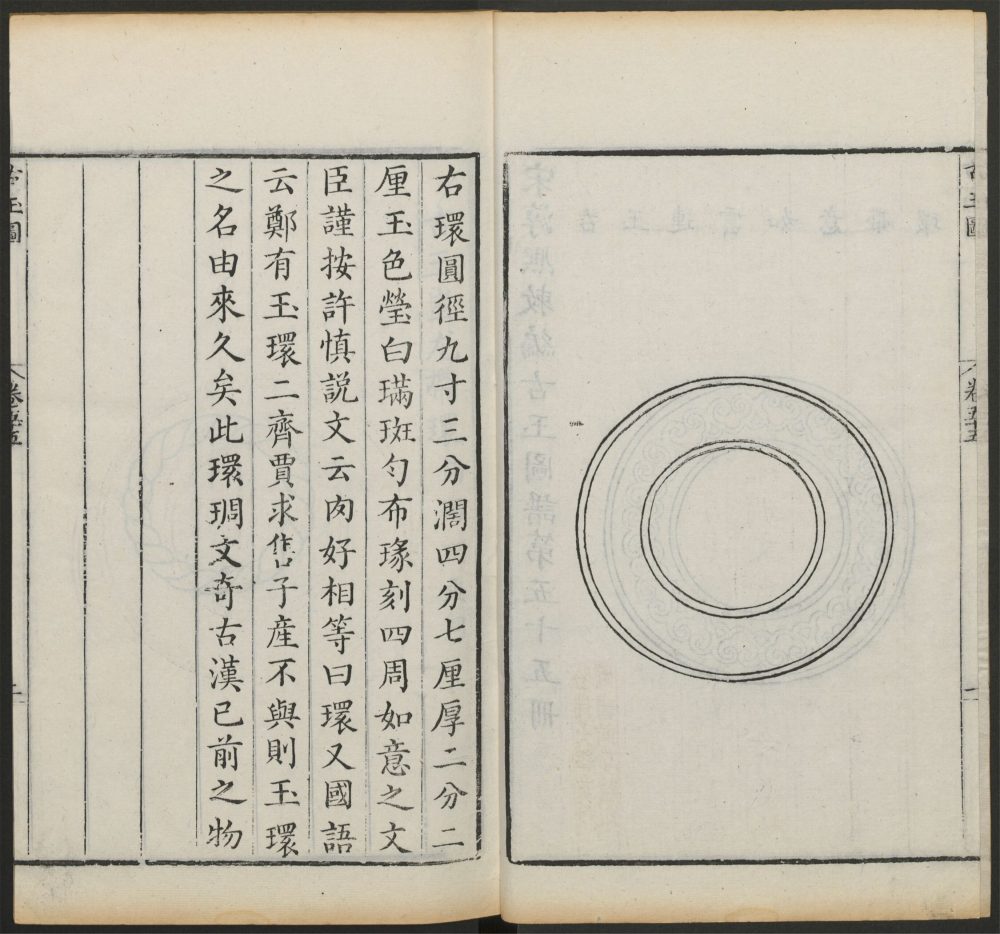 古玉圖
卷五十五
一
右環圓徑九寸三分濶四分七厘厚二分二
厘玉色瑩白璊斑勻布瑑刻四周如意之文
臣謹按許慎説文云肉好相等曰環又國語
云鄭有玉環二齊賈求售子產不與則玉環
之名由來久矣此環琱文奇古漢已前之物
古玉圖
卷五十五